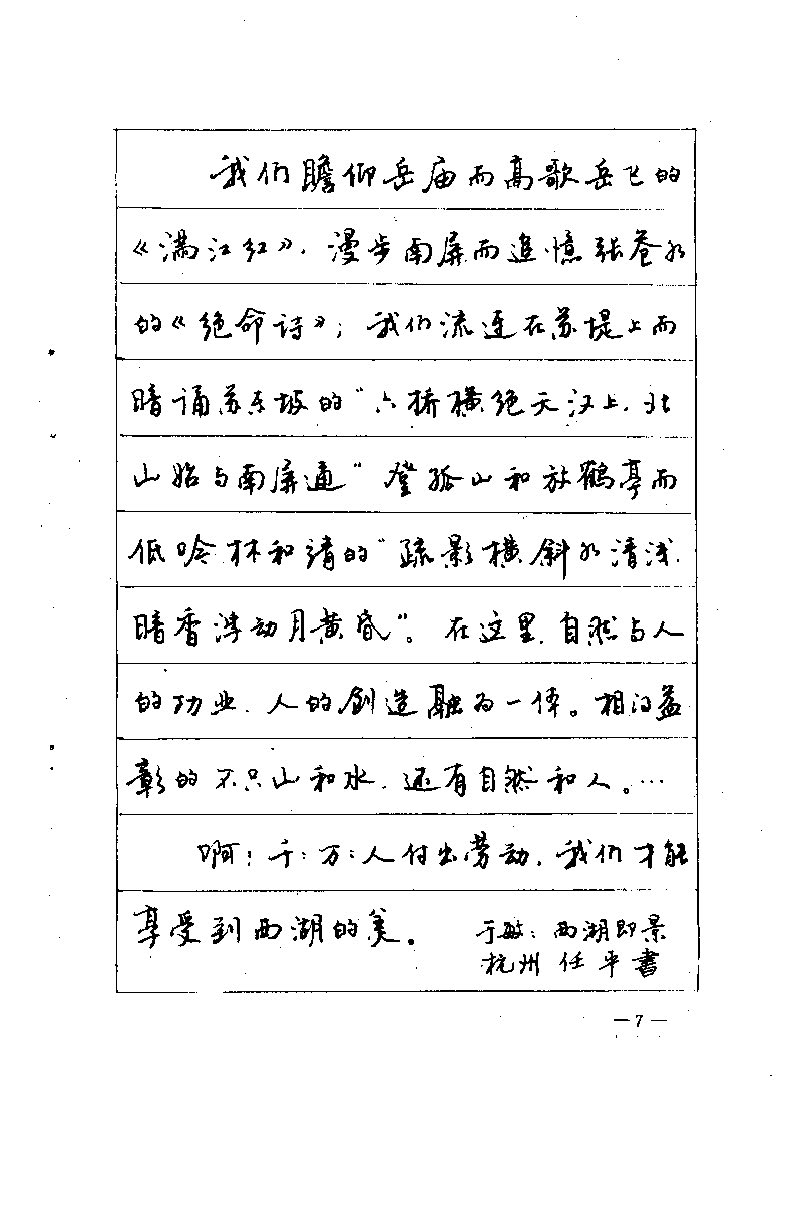 我们瞻仰岳庙而高歌岳飞的
《满江红》，漫步南屏而追憶张苍水
的《绝命诗》；我们流连在苏堤上而
暗诵苏东坡的“六桥横绝天汉上，北
山始与南屏通”登孤山和放鹤亭而
低吟林和靖的“疏影横斜水清浅，
暗香浮动月黄昏”。在这里，自然与人
的功业，人的创造融为一体。相得益
彰的不只山和水，还有自然和人。…
啊！千：万：人付出劳动，我们才能
享受到西湖的美。
于敏：西湖即景
杭州 任平書
—7—